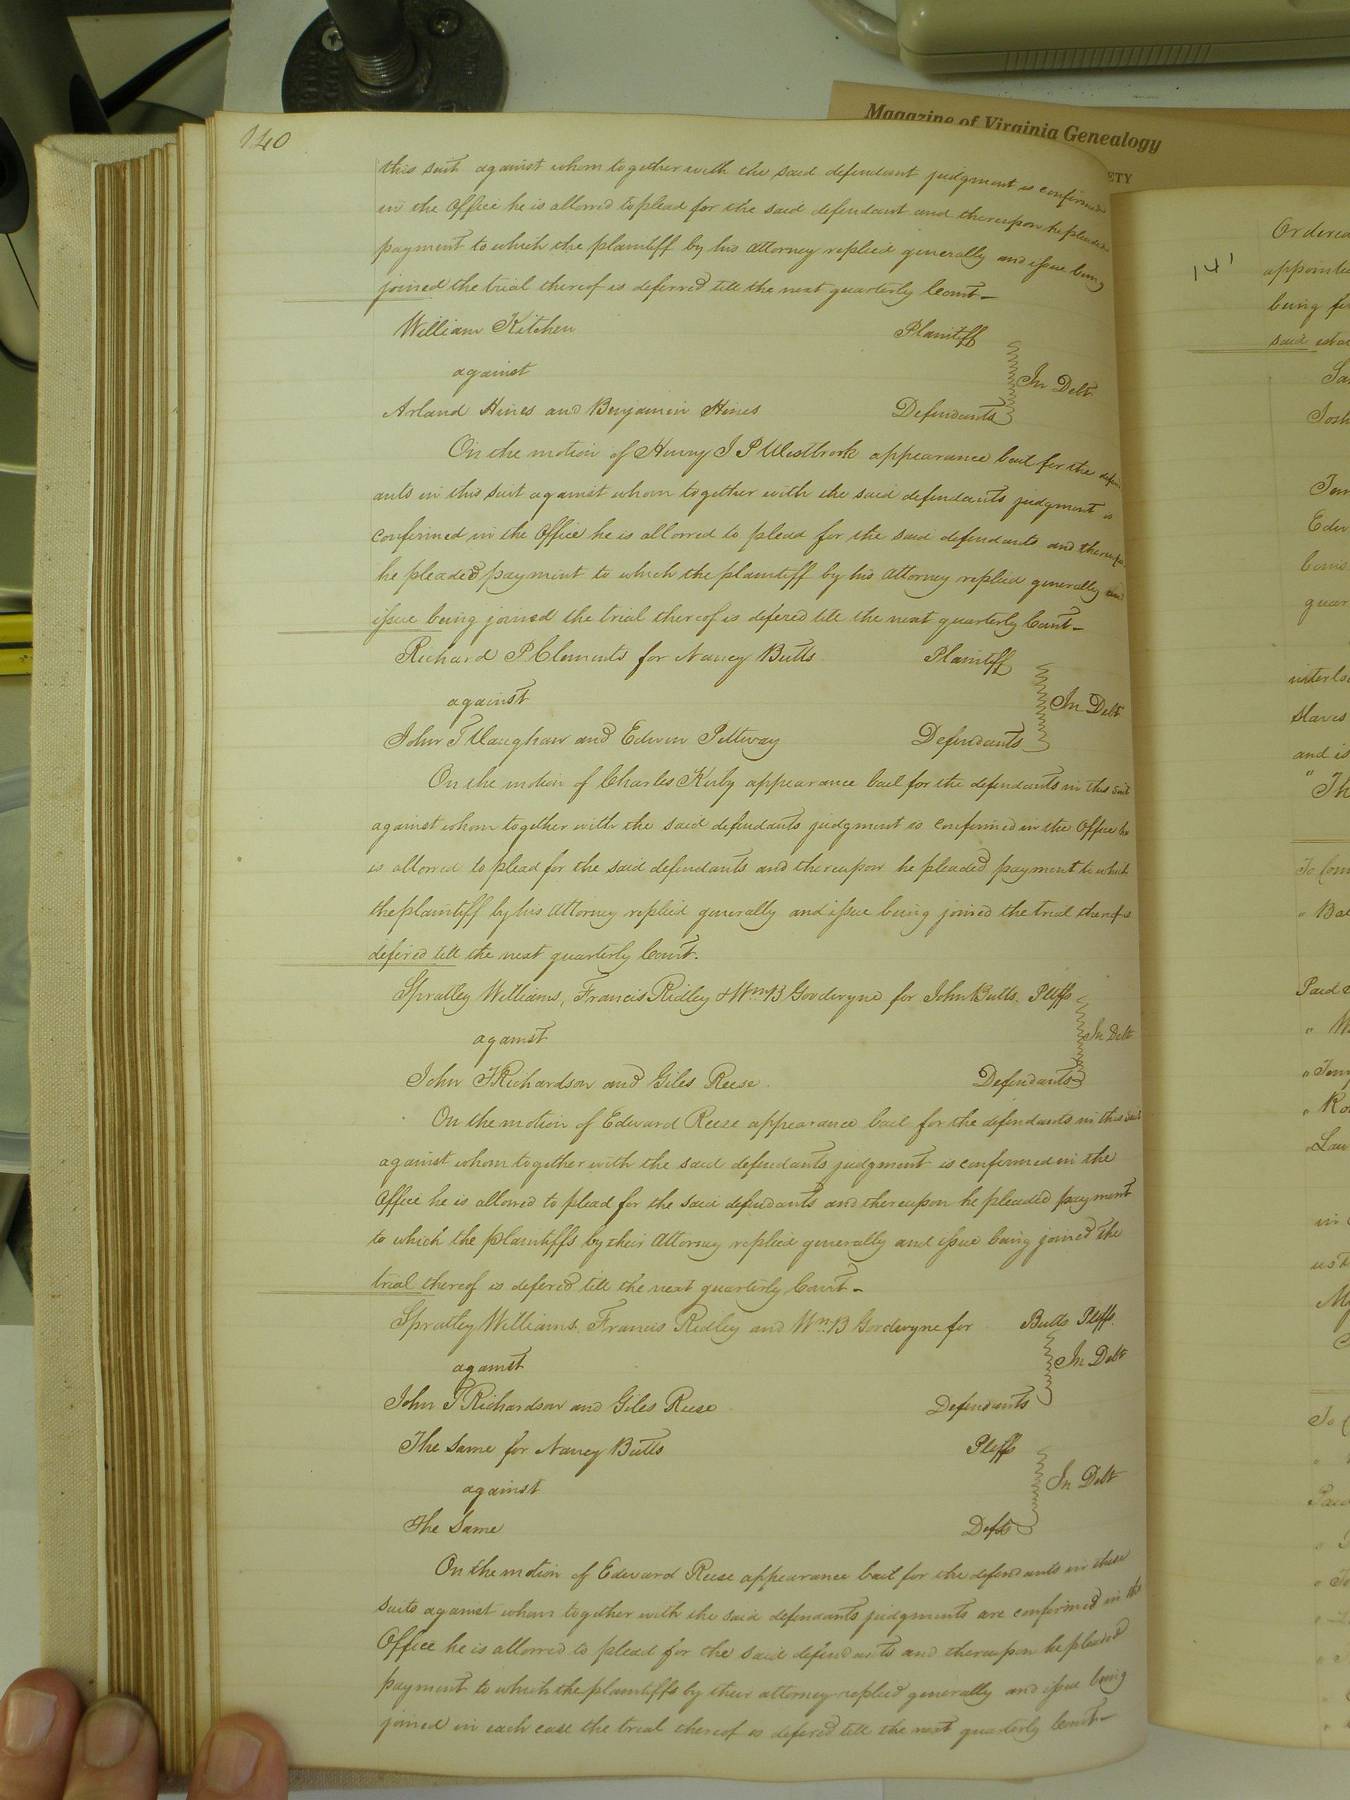 Magazine of Virginia Genealogy
ETY
140
this suit against whom together with the said defendant judgment is confirmed
in the Office he is allowed to plead for the said defendant and thereupon he pleaded
payment to which the plaintiff by his attorney replied generally and issue being
joined the trial thereof is deferred till the next quarterly Court—
William Kitchen Plaintiff
against In Debt
Arland Hines and Benjamin Hines Defendants
On the motion of Henry J P Westbrook appearance bail for the defend
ants in this suit against whom together with the said defendants judgment is
confirmed in the Office he is allowed to plead for the said defendants and thereupon
he pleaded payment to which the plaintiff by his attorney replied generally and
issue being joined the trial thereof is defered till the next quarterly Court—
Richard P Clements for Nancy Butts Plaintiff
against In Debt
John T Vaughan and Edwin Pittway Defendants
On the motion of Charles Kirby appearance bail for the defendants in this suit
against whom together with the said defendants judgment is confirmed in the Office he
is allowed to plead for the said defendants and thereupon he pleaded payment to which
the plaintiff by his attorney replied generally and issue being joined the trial thereof is
defered till the next quarterly Court.
Spratley Williams, Francis Ridley & Wm B Goodwyne for John Butts Pltffs
against In Debt
John T Richardson and Giles Reese Defendants
On the motion of Edward Reese appearance bail for the defendants in this suit
against whom together with the said defendants judgment is confirmed in the
Office he is allowed to plead for the said defendants and thereupon he pleaded payment
to which the plaintiffs by their attorney replied generally and issue being joined the
trial thereof is defered till the next quarterly Court—
Spratley Williams, Francis Ridley and Wm B Goodwyne for Butts Pltffs.
against In Debt
John T Richardson and Giles Reese Defendants
The Same for Nancy Butts Pltffs
against In Debt
The Same Defts
On the motion of Edward Reese appearance bail for the defendants in these
suits against whom together with the said defendants judgments are confirmed in the
Office he is allowed to plead for the said defendants and thereupon he pleaded
payment to which the plaintiffs by their attorney replied generally and issue being
joined in each case the trial thereof is defered till the next quarterly Court—
141
Ordered
being
said
Edw
slaves
and is
Paid